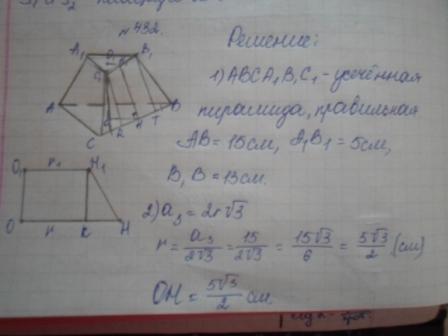 № 432.
Решение:
1) ABCA₁B₁C₁ - усечённая
пирамида, правильная
AB = 15 см, A₁B₁ = 5 см,
B₁B = 13 см.
2) a₃ = 2r√3
r = a₃/2√3 = 15/2√3 = 15√3/6 = 5√3/2 (см)
OH = 5√3/2 см.
A₁
B₁
A
B
C
K
H
T
O₁ r₁ H₁
O r K H